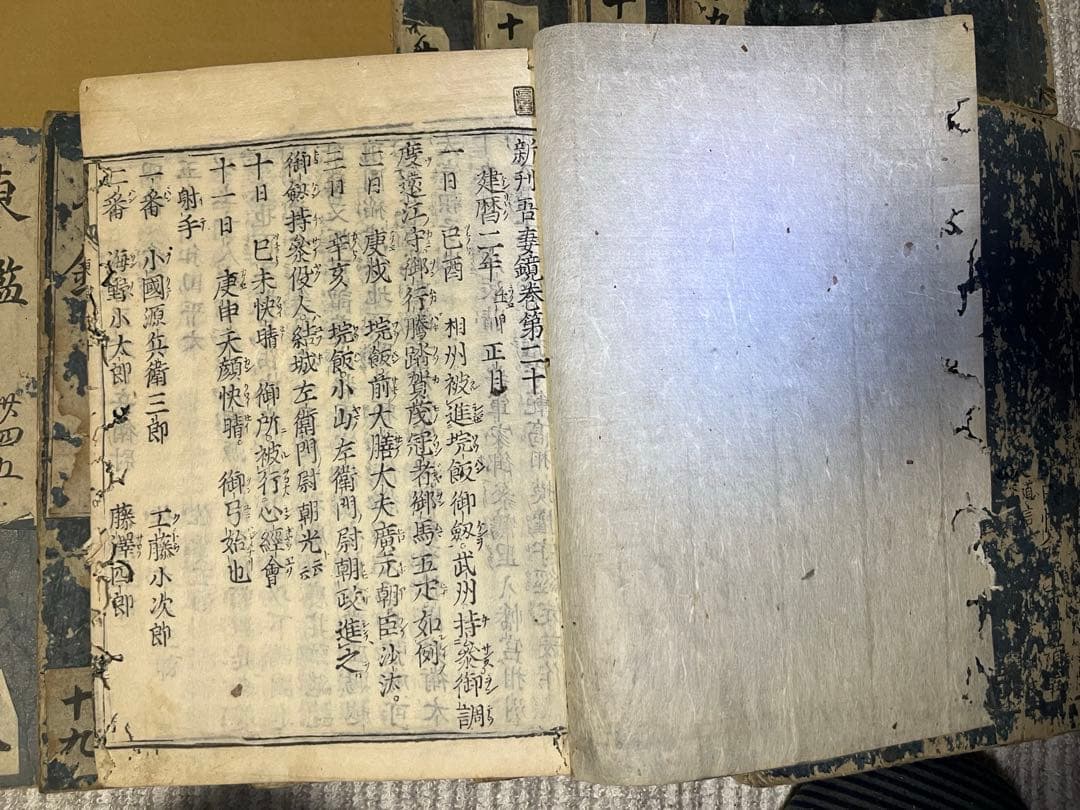 新刊吾妻鏡卷第二十
建曆二年壬申正月
一日己酉 相州被進垸飯御劔。武州持參御調
度遠江守御行騰路賀茂冠者御馬五疋如例
二日庚戌 垸飯前大膳大夫廣元朝臣沙汰。
三日辛亥 垸飯小山左衛門尉朝政進之
御劔持參役人結城左衛門尉朝光云云
十日 己未快晴 御所被行心經會
十一日 庚申天顏快晴。 御弓始也
射手
一番 小國源兵衛三郎 工藤小次郎
二番 海野小太郎 藤澤四郎
東鑑
廿四五
十九
十
十
九